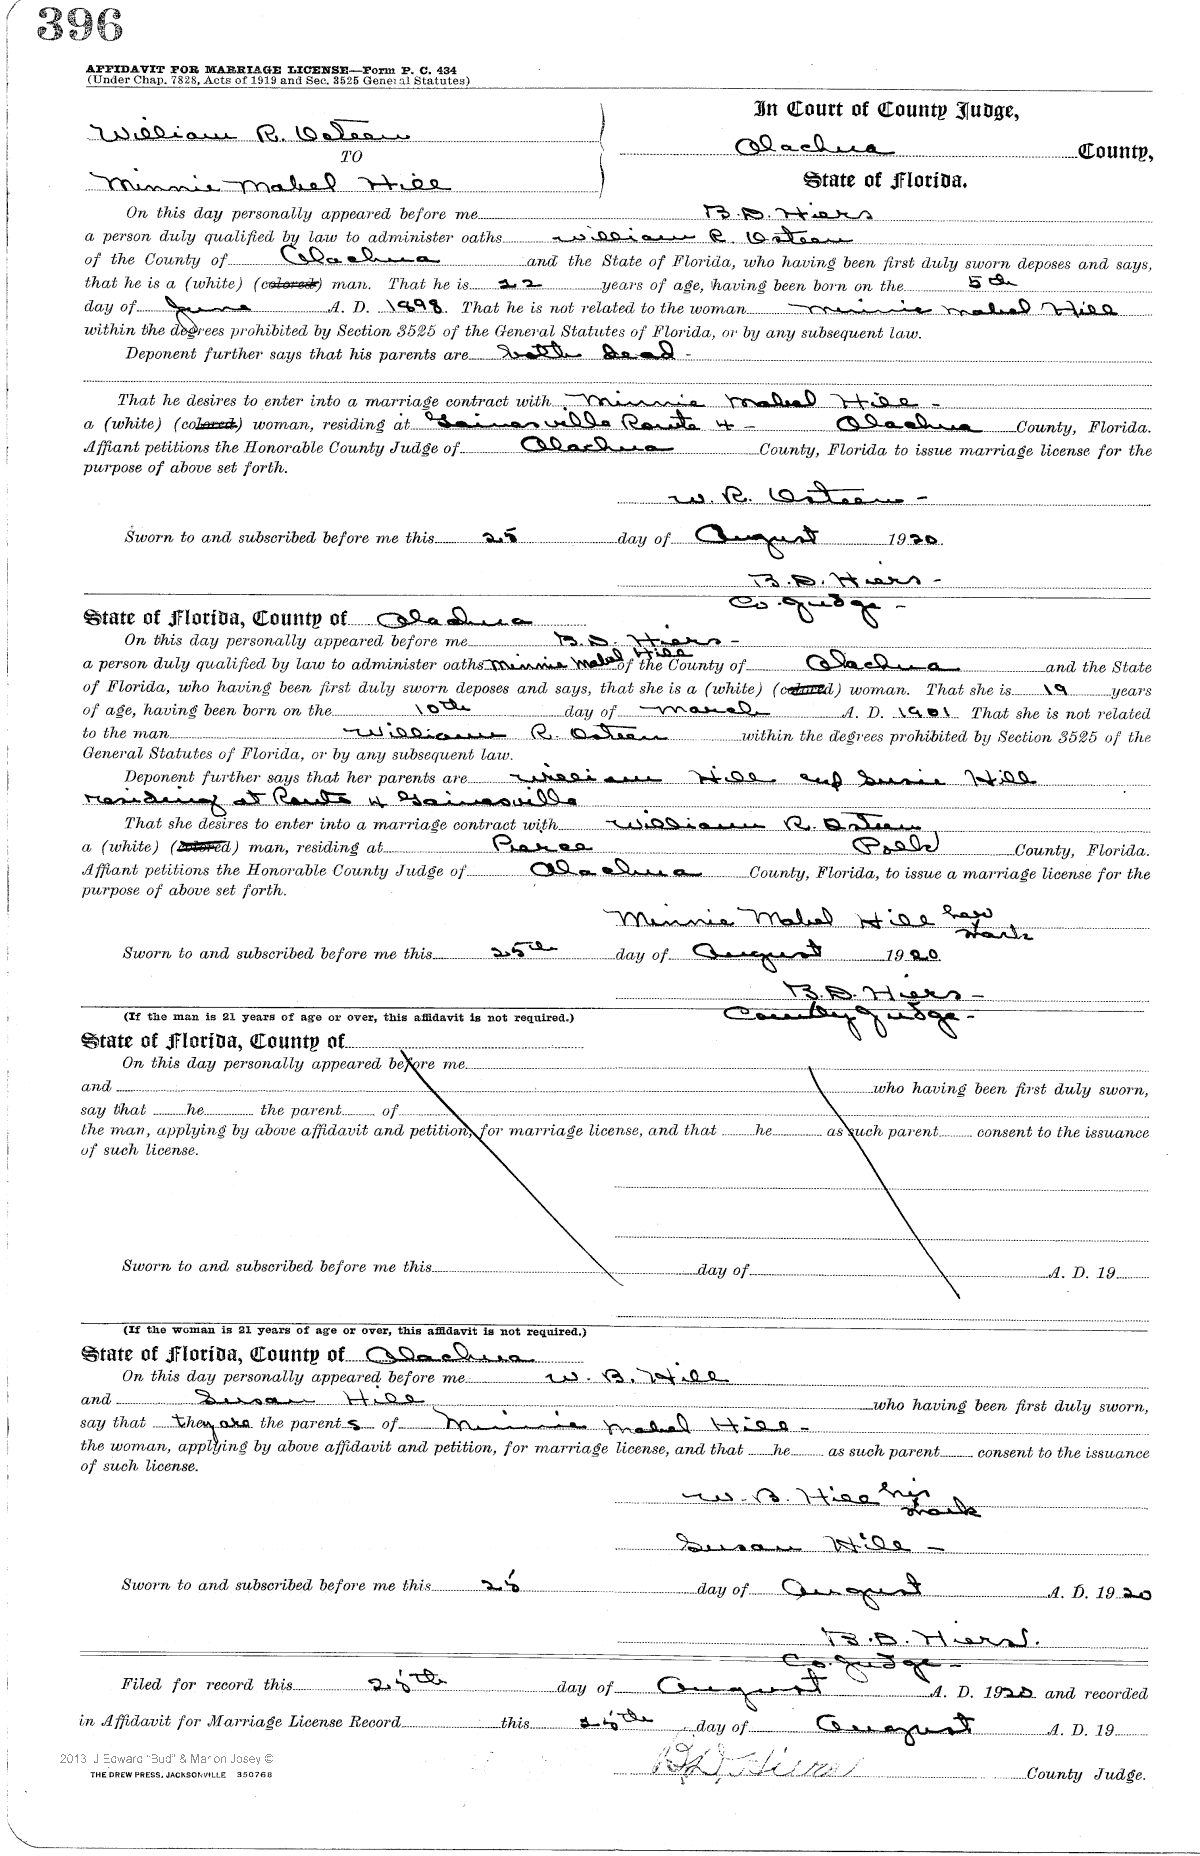 396
AFFIDAVIT FOR MARRIAGE LICENSE—Form P. C. 434
(Under Chap. 7828, Acts of 1919 and Sec. 3525 General Statutes)
William R. Osteen
TO
Minnie Mabel Hill
In Court of County Judge,
Alachua County,
State of Florida.
On this day personally appeared before me B. D. Hiers
a person duly qualified by law to administer oaths William R. Osteen
of the County of Alachua and the State of Florida, who having been first duly sworn deposes and says,
that he is a (white) (colored) man. That he is 22 years of age, having been born on the 5th
day of June A. D. 1898. That he is not related to the woman Minnie Mabel Hill
within the degrees prohibited by Section 3525 of the General Statutes of Florida, or by any subsequent law.
Deponent further says that his parents are both dead -
That he desires to enter into a marriage contract with Minnie Mabel Hill -
a (white) (colored) woman, residing at Gainesville Route 4 - Alachua County, Florida.
Affiant petitions the Honorable County Judge of Alachua County, Florida to issue marriage license for the
purpose of above set forth.
W. R. Osteen -
Sworn to and subscribed before me this 25 day of August 1920.
B. D. Hiers -
Co. Judge -
State of Florida, County of Alachua
On this day personally appeared before me B. D. Hiers -
a person duly qualified by law to administer oaths Minnie Mabel Hill of the County of Alachua and the State
of Florida, who having been first duly sworn deposes and says, that she is a (white) (colored) woman. That she is 19 years
of age, having been born on the 10th day of March A. D. 1901 That she is not related
to the man William R. Osteen within the degrees prohibited by Section 3525 of the
General Statutes of Florida, or by any subsequent law.
Deponent further says that her parents are William Hill and Susie Hill
residing at Route 4 Gainesville
That she desires to enter into a marriage contract with William R. Osteen
a (white) (colored) man, residing at Pierce Polk County, Florida.
Affiant petitions the Honorable County Judge of Alachua County, Florida, to issue a marriage license for the
purpose of above set forth.
Minnie Mabel Hill her
mark
Sworn to and subscribed before me this 25th day of August 1920.
B. D. Hiers -
County Judge -
(If the man is 21 years of age or over, this affidavit is not required.)
State of Florida, County of
On this day personally appeared before me
and who having been first duly sworn,
say that he the parent of
the man, applying by above affidavit and petition, for marriage license, and that he as such parent consent to the issuance
of such license.
Sworn to and subscribed before me this day of A. D. 19
(If the woman is 21 years of age or over, this affidavit is not required.)
State of Florida, County of Alachua
On this day personally appeared before me W. B. Hill
and Susan Hill who having been first duly sworn,
say that they are the parents of Minnie Mabel Hill -
the woman, applying by above affidavit and petition, for marriage license, and that he as such parent consent to the issuance
of such license.
W. B. Hill his
mark
Susan Hill -
Sworn to and subscribed before me this 25 day of August A. D. 1920
B. D. Hiers.
Co. Judge -
Filed for record this 25th day of August A. D. 1920 and recorded
in Affidavit for Marriage License Record this 25th day of August A. D. 19
2013 J Edward "Bud" & Marion Josey ©
THE DREW PRESS, JACKSONVILLE 350768
B. D. Hiers County Judge.